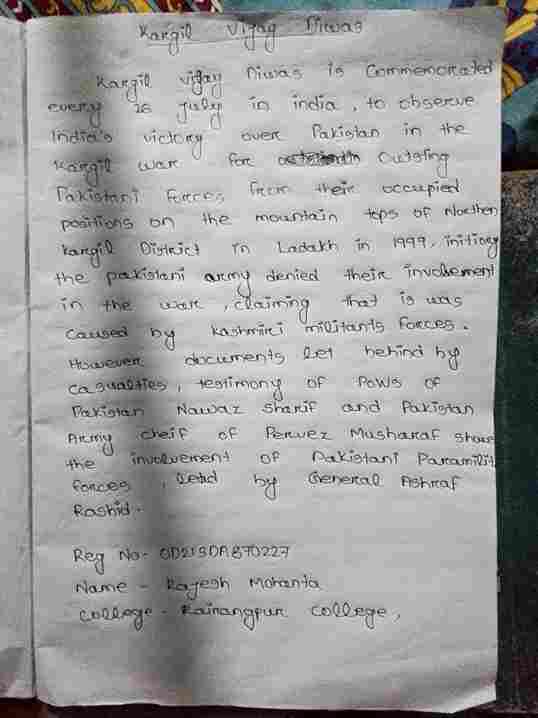 Kargil Vijay Diwas
Kargil vijay Diwas is Commemorated
every 26 July in india, to observe
India's victory over Pakistan in the
Kargil war for Outsting
Pakistani Forces from their occupied
positions on the mountain tops of Northen
Kargil District in Ladakh in 1999, initiony
the pakistani army denied their involvement
in the war, claiming that is was
caused by Kashmiri militants forces.
However documents let behind by
casualties, testimony of POWs of
Pakistan Nawaz sharif and Pakistan
Army cheif of Pervez Musharaf show
the involvement of Pakistani Paramilit
forces, by General Ashraf
Rashid.
Reg No- OD21SDA870227
Name - Rajesh Mohanta
College - Rairangpur College,